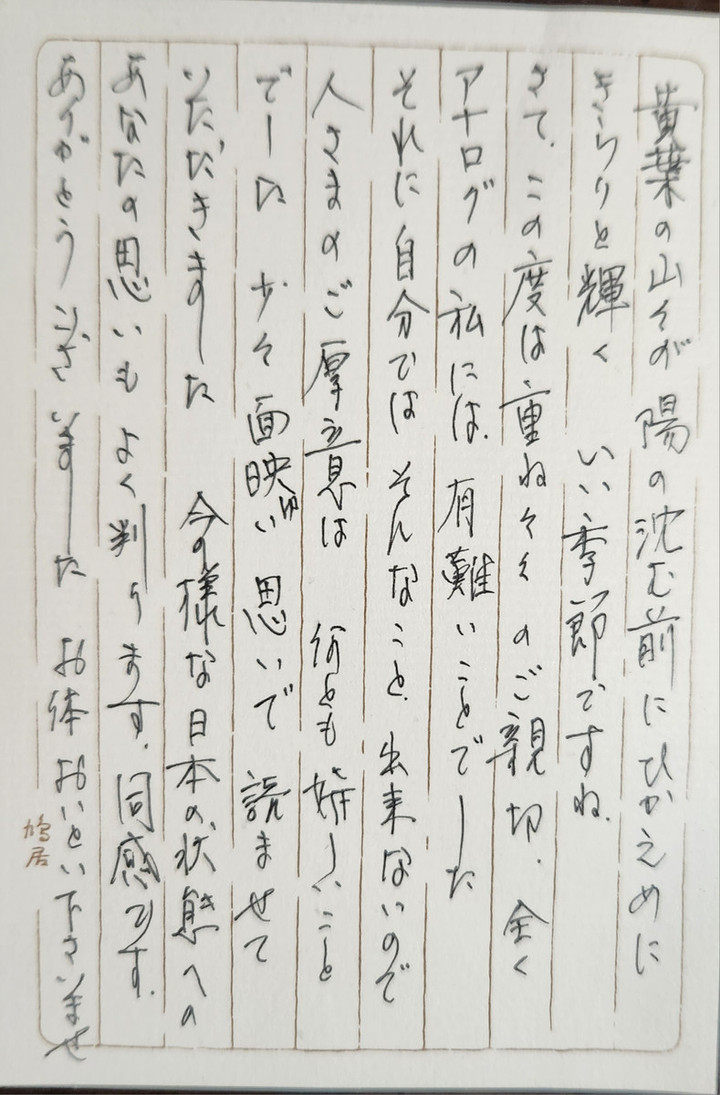 黄葉の山々が 陽の沈む前に ひかえめに
きらりと輝く いい季節ですね.
さて、この度は重ね々々のご親切. 全く
アナログの私には、有難いことでした
それに自分ではそんなこと、出来ないので
人さまのご厚意は 何とも嬉しいこと
でした 少々面映ゆい思いで 読ませて
いただきました 今の様な日本の状態への
あなたの思いも よく判ります. 同感です.
ありがとうございました お体おいとい下さいませ
鳩居